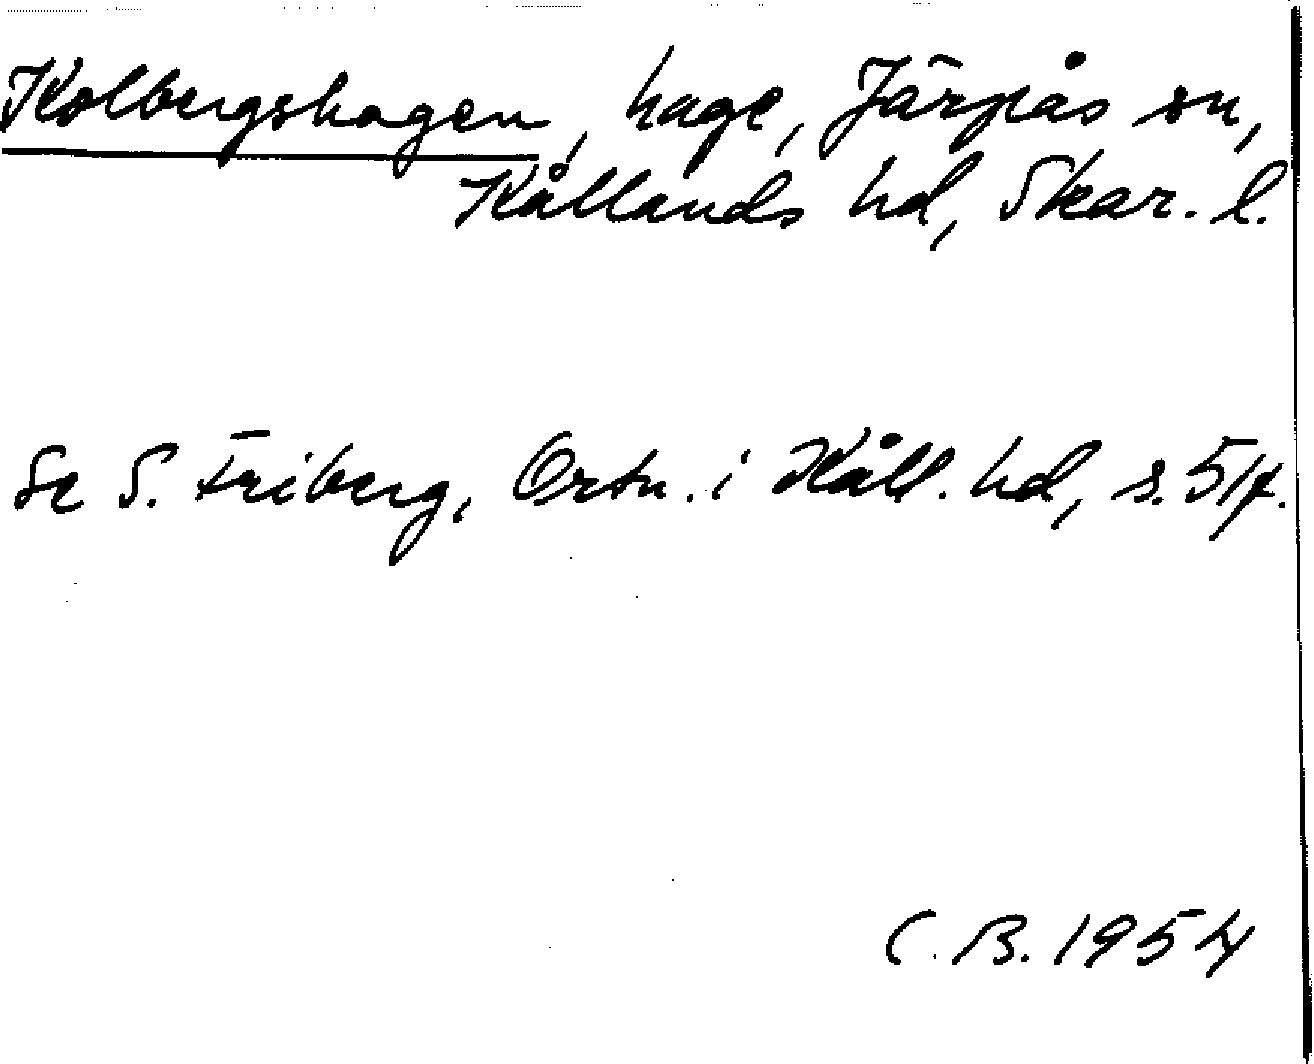 Kolbergshagen, hage, Järpås sn,
Kållands hd, Skar. l.
Se S. Friberg, Ortn. i Kåll. hd, s. 517.
C.B. 1954